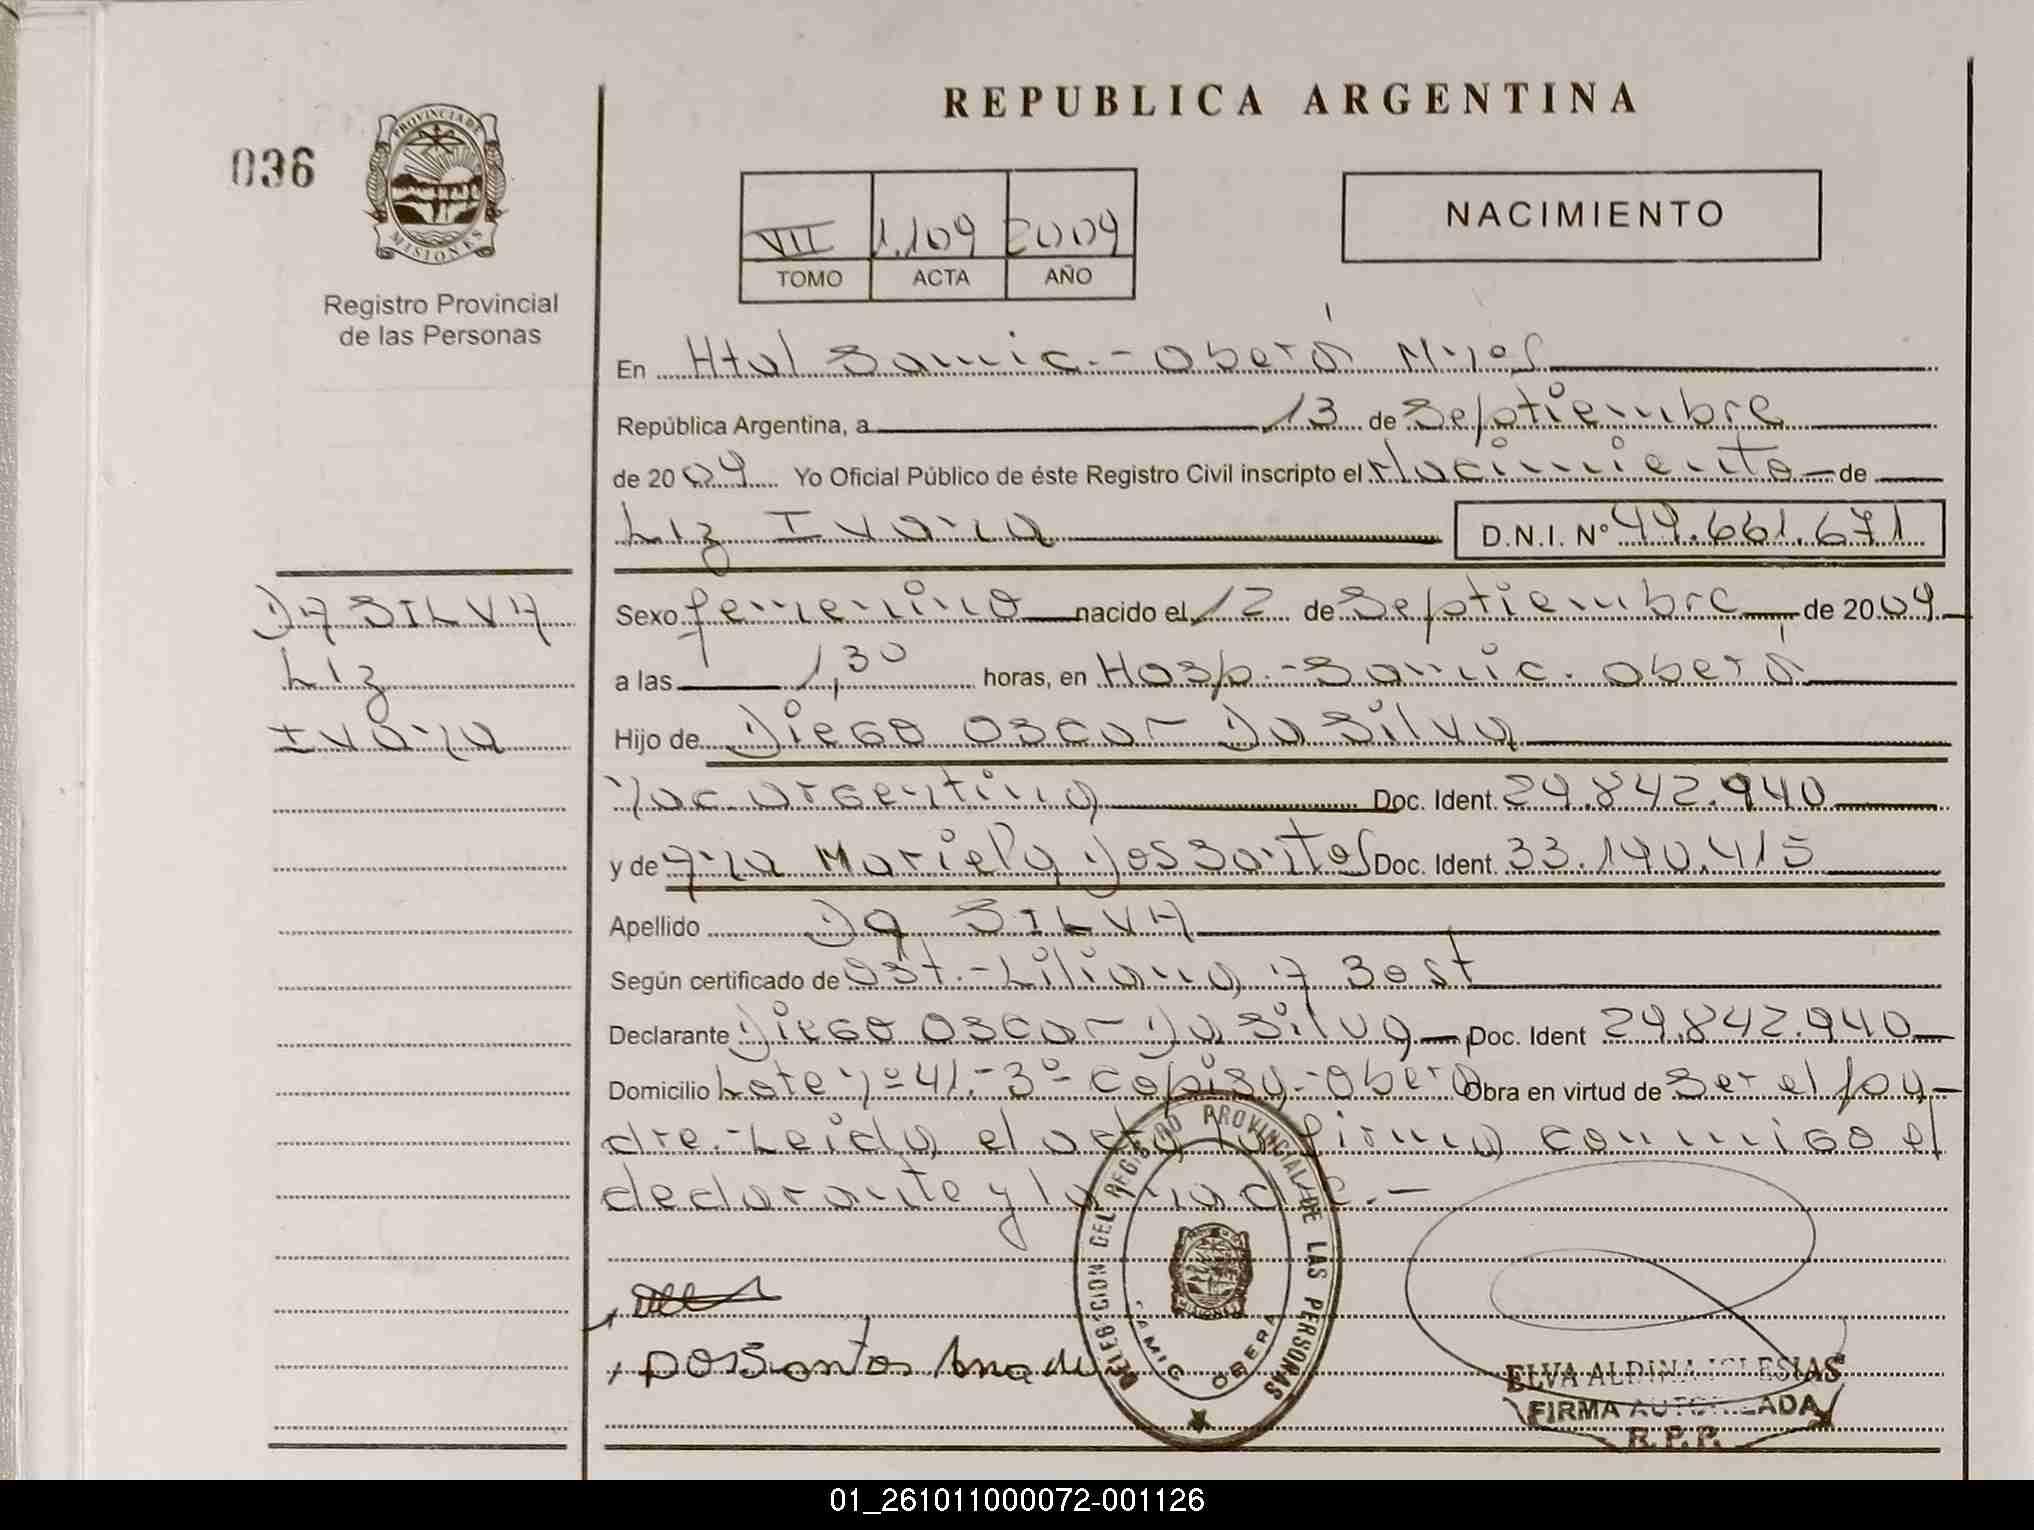 REPUBLICA ARGENTINA
036
PROVINCIA DE
MISIONES
Registro Provincial
de las Personas
VII 1.109 2009
TOMO ACTA AÑO
NACIMIENTO
En Htal Samic.- Oberá Mnes
República Argentina, a 13 de Septiembre
de 2009 Yo Oficial Público de éste Registro Civil inscripto el Nacimiento de
Liz Ivana D.N.I. Nº 49.661.671
DA SILVA
Liz
Ivana
Sexo femenino nacido el 12 de Septiembre de 2009
a las 1,30 horas, en Hosp.-Samic. Oberá
Hijo de Diego Oscar Da Silva
Nac. argentina Doc. Ident. 29.842.940
y de Ana Mariela Dos Santos Doc. Ident. 33.190.415
Apellido Da SILVA
Según certificado de Ost.-Liliana A Bost
Declarante Diego Oscar Da Silva Doc. Ident 29.842.940
Domicilio Lote Nº 41.-3º Copisy.-Oberá Obra en virtud de Ser el pa-
dre.-Leida el acta la firma conmigo el
declarante y la madre.-
Dossantos Ana
DELEGACION DEL REGISTRO PROVINCIAL DE LAS PERSONAS
SAMIC OBERA
ELVA ALDINA IGLESIAS
FIRMA AUTORIZADA
R.P.P.
01_261011000072-001126